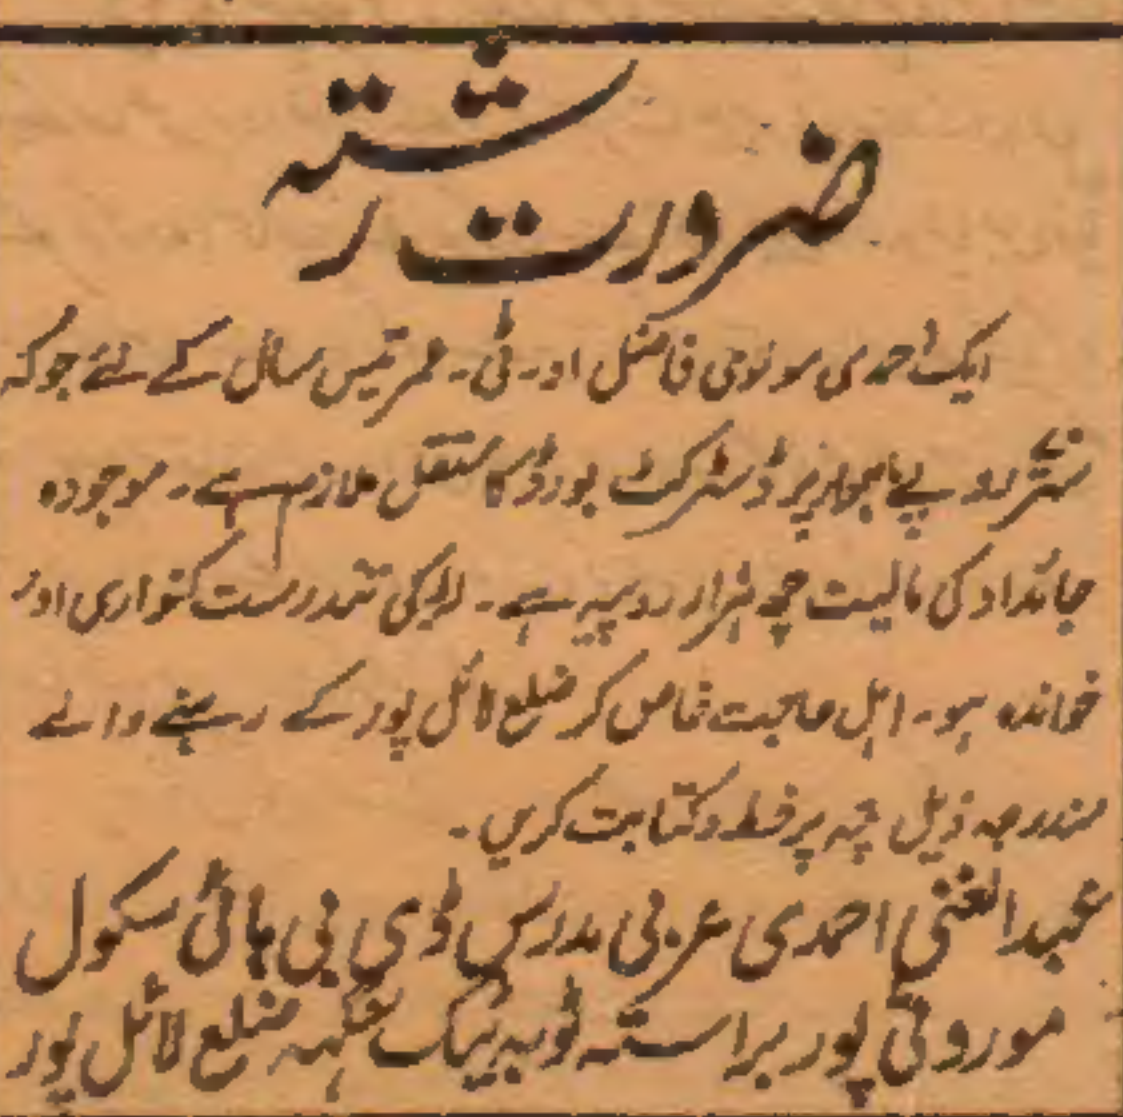 ضرورت رشتہ
ایک احمدی مولوی فاضل او۔ ٹی۔ عمر تیس سال کے لئے جو کہ
ستر روپے ماہوار پر ڈسٹرکٹ بورڈ کا مستقل ملازم ہے۔ موجودہ
جائداد کی مالیت چھ ہزار روپیہ ہے۔ لڑکی تندرست کنواری اور
خواندہ ہو۔ اہل حاجت خاص کر ضلع لائل پور کے رہنے والے
مندرجہ ذیل پتہ پر خط و کتابت کریں۔
عبدالغنی احمدی عربی مدرس ڈی بی ہائی سکول
موروثی پور براستہ ٹوبہ ٹیک سنگھ ضلع لائل پور